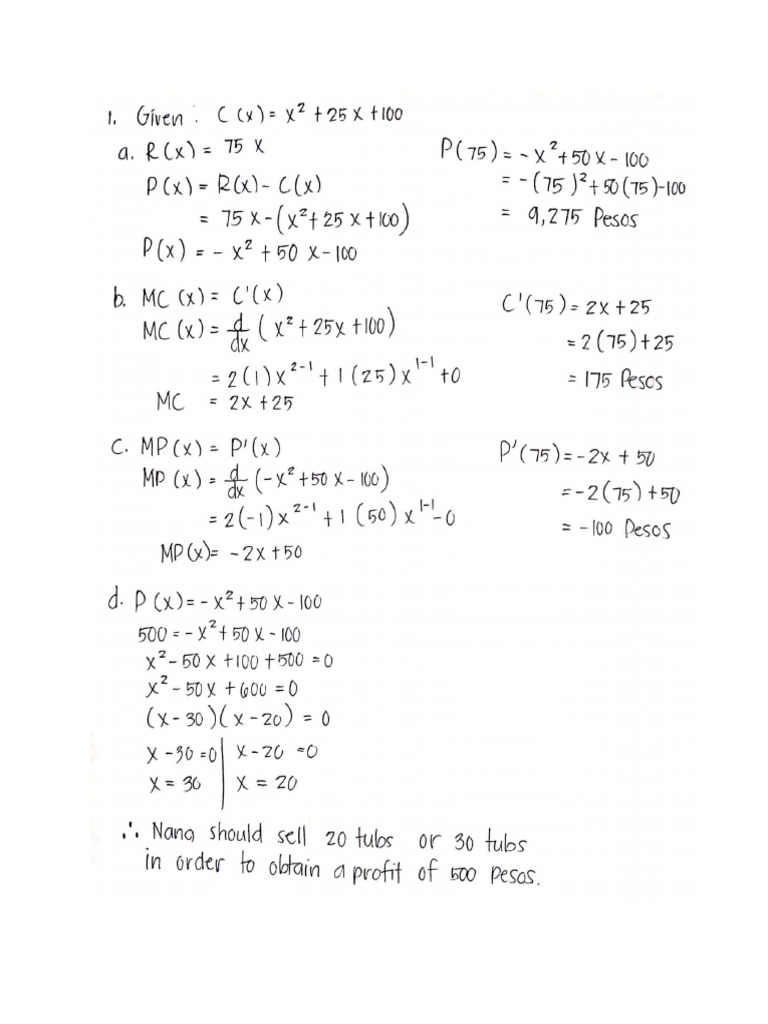 1. Given : C (x) = x² + 25 x + 100
a. R(x) = 75 x
P(x) = R(x) - C(x)
= 75 x - (x² + 25 x + 100)
P(x) = - x² + 50 x - 100
P(75) = - x² + 50 x - 100
= - (75)² + 50 (75) - 100
= 9,275 Pesos
b. MC (x) = C'(x)
MC (x) = d/dx (x² + 25x + 100)
= 2(1)x²⁻¹ + 1(25)x¹⁻¹ + 0
MC = 2x + 25
C'(75) = 2x + 25
= 2 (75) + 25
= 175 Pesos
c. MP(x) = P'(x)
MP (x) = d/dx (-x² + 50 x - 100)
= 2(-1)x²⁻¹ + 1 (50) x¹⁻¹ - 0
MP(x) = - 2x + 50
P'(75) = - 2x + 50
= -2 (75) + 50
= -100 Pesos
d. P (x) = - x² + 50 x - 100
500 = - x² + 50 x - 100
x² - 50 x + 100 + 500 = 0
x² - 50x + 600 = 0
(x - 30)(x - 20) = 0
x - 30 = 0 | x - 20 = 0
x = 30 | x = 20
∴ Nana should sell 20 tubs or 30 tubs
in order to obtain a profit of 500 pesos.